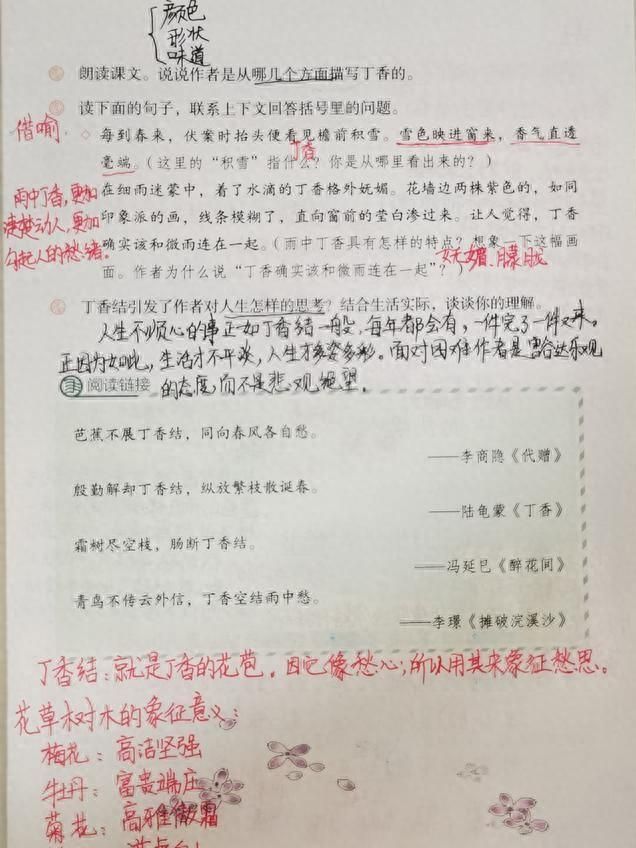 颜色
形状
味道
朗读课文。说说作者是从哪几个方面描写丁香的。
读下面的句子，联系上下文回答括号里的问题。
借喻
◇ 每到春来，伏案时抬头便看见檐前积雪。雪色映进窗来，香气直透
丁香
毫端。（这里的“积雪”指什么？你是从哪里看出来的？）
雨中丁香，更加
在细雨迷蒙中，着了水滴的丁香格外妩媚。花墙边两株紫色的，如同
凄楚动人，更加
印象派的画，线条模糊了，直向窗前的莹白渗过来。让人觉得，丁香
勾起人的愁绪。
确实该和微雨连在一起。（雨中丁香具有怎样的特点？想象一下这幅画
妩媚、朦胧
面。作者为什么说“丁香确实该和微雨连在一起”？）
丁香结引发了作者对人生怎样的思考？结合生活实际，谈谈你的理解。
人生不顺心的事正如丁香结一般，每年都会有，一件完了一件又来。
正因为如此，生活才不平淡，人生才多姿多彩。面对困难作者是豁达乐观
阅读链接
的态度，而不是悲观绝望。
芭蕉不展丁香结，同向春风各自愁。
——李商隐《代赠》
殷勤解却丁香结，纵放繁枝散诞春。
——陆龟蒙《丁香》
霜树尽空枝，肠断丁香结。
——冯延巳《醉花间》
青鸟不传云外信，丁香空结雨中愁。
——李璟《摊破浣溪沙》
丁香结：就是丁香的花苞。因它像愁心，所以用其来象征愁思。
花草树木的象征意义：
梅花：高洁坚强
牡丹：富贵端庄
菊花：高雅傲霜